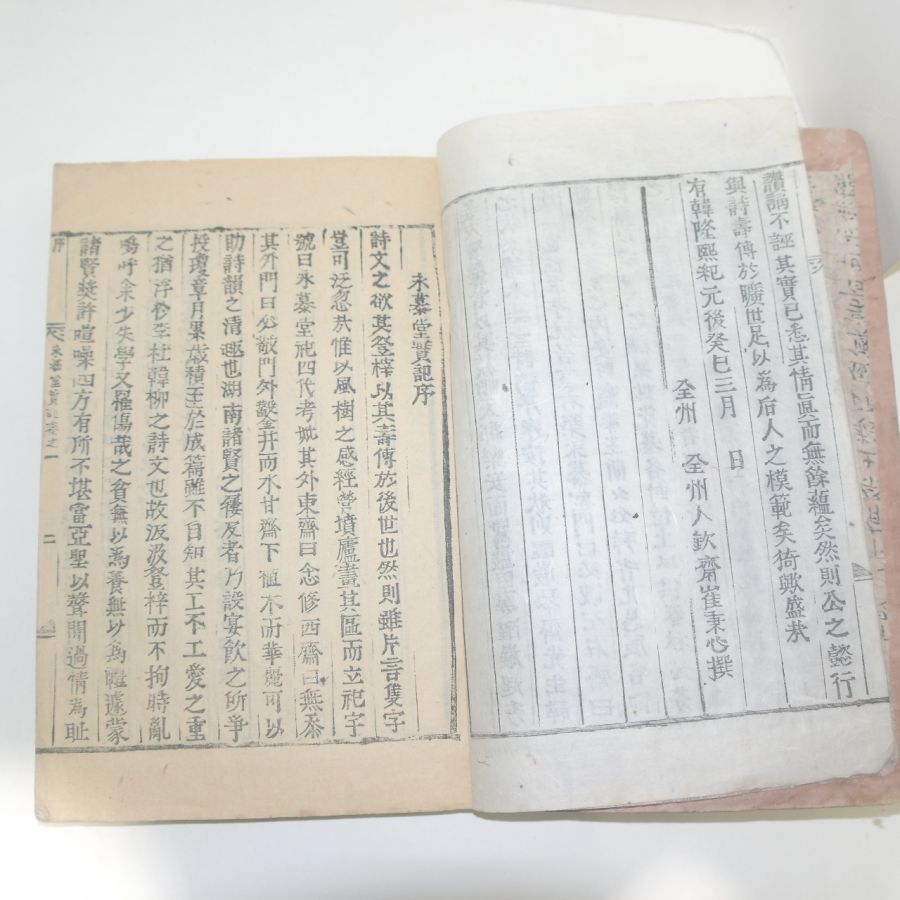 讚誦不誣其實已悉其情眞而無餘蘊矣然則公之懿行
與詩壽傳於曠世足以為后人之模範矣猗歟盛哉
有韓隆熙紀元後癸巳三月 日
全州 全州人欽齋崔秉心撰
永慕堂實記序
詩文之欲其登梓以其壽傳於後世也然則雖片言隻字
豈可泛忽哉惟以風樹之感經營墳廬畫其區而立祀宇
號曰永慕堂祀四代考妣其外東齋曰念修西齋曰無忝
其外門曰必敬門外鑿井而水甘齋下植木而華麗可以
助詩韻之清趣也湖南諸賢之
者乃設宴飮之所爭
投瓊章月累歲積至於成篇雖不自知其工不工愛之重
之猶浮於李杜韓柳之詩文也故汲汲登梓而不拘時亂
嗚呼余少失學又罹傷哉之貧無以為養無以為禮濾蒙
諸賢奬許喧噪四方有所不堪當亞聖以聲聞過情為耻
序 永慕堂實記卷之一 二